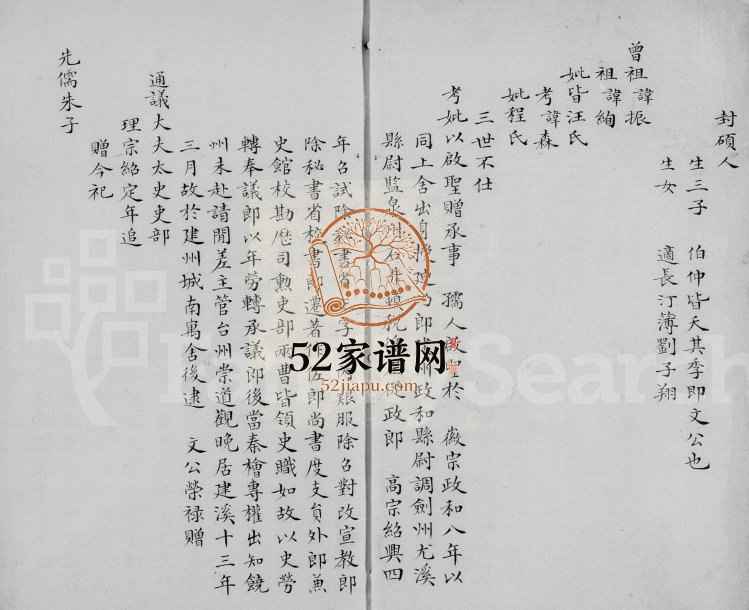 封碩人
生三子 伯仲皆夭其季即文公也
生女 適長汀簿劉子翔
曾祖諱振
祖諱絢
妣皆汪氏
考諱森
妣程氏
三世不仕
考妣以啟聖贈承事 孺人 於 徽宗政和八年以
同上舍出身 郎 州政和縣尉調劍州尤溪
縣尉監泉 石井鎮稅 從政郎 高宗紹興四
年召試除 書省 字 艱服除召對改宣教郎
除秘書省校書郎遷著作佐郎尚書度支員外郎兼
史館校勘歷司勲吏部兩曹皆領史職如故以史勞
轉奉議郎以年勞轉承議郎後當秦檜專權出知饒
州未赴請閒差主管台州崇道觀晚居建溪十三年
三月故於建州城南寓舍後逮 文公榮祿贈
通議大夫太史吏部
理宗紹定年追
贈今祀
先儒朱子
52家谱网
52jiapu.com
Search